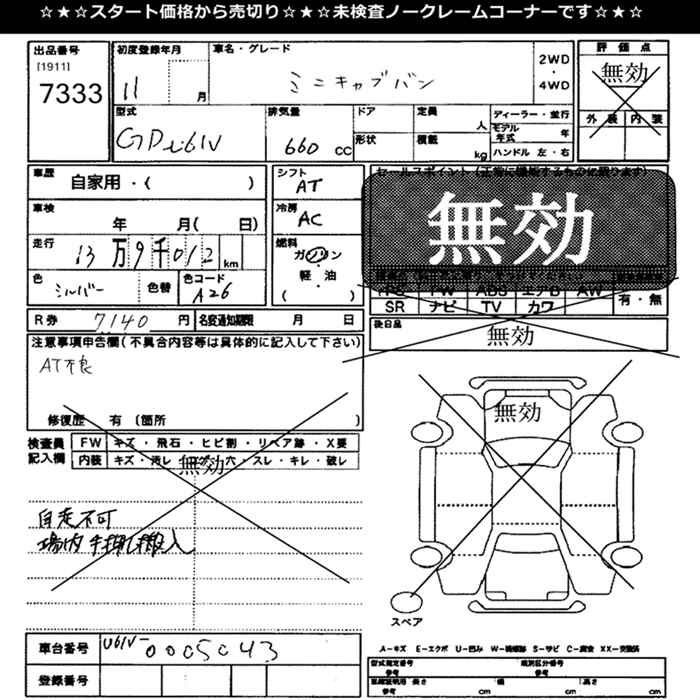 ☆★☆スタート価格から売切り☆★☆未検査ノークレームコーナーです☆★☆
出品番号
[1911]
7333
初度登録年月
11
月
車名・グレード
ミニキャブバン
2WD
・
4WD
評価点
無効
外装 内装
型式
排気量
660 cc
ドア
形状
定員
人
積載
kg
ディーラー・並行
モデル年式
年
ハンドル 左・右
車歴
自家用・( )
シフト
AT
車検
年 月( 日)
冷房
AC
無効
走行
13万9千012km
燃料
ガソリン
・
軽・油
( )
色
シルバー
色替
色コード
A26
SR ナビ TV カワ
有・無
R券
7140円
名変通知期限 月 日
後日品
無効
注意事項申告欄(不具合内容等は具体的に記入して下さい)
AT不良
修復歴 有 〔箇所 〕
無効
検査員
記入欄
FW キズ・飛石・ヒビ割・リペア跡・X要
内装 キズ・汚レ・ ・穴・スレ・キレ・破レ
無効
自走不可
場内手押し搬入
スペア
車台番号
U61V-0005043
登録番号
A-キズ E-エクボ U-凹み W-補修跡 S-サビ C-腐食 XX-交換済
型式指定番号
参考
類別区分番号
参考
長さ
cm
幅
cm
高さ
cm